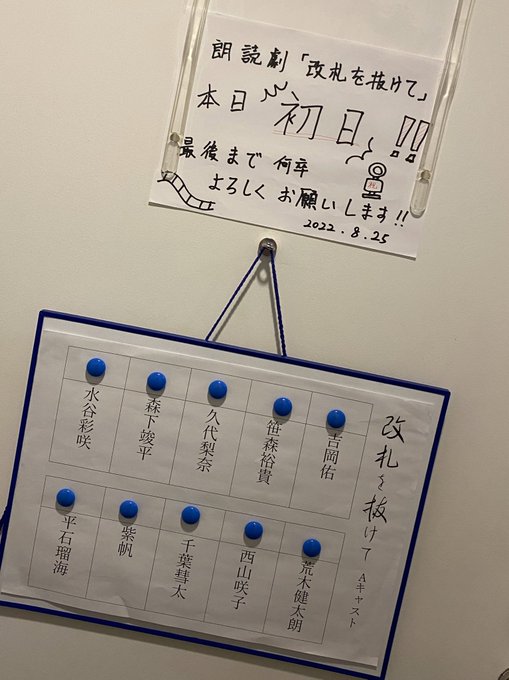 朗読劇「改札を抜けて」
本日 初日!!
最後まで何卒
よろしくお願いします!!
2022.8.25
改札を抜けて Aキャスト
吉岡佑
笹森裕貴
久代梨奈
森下竣平
水谷彩咲
荒木健太朗
西山咲子
千葉彗太
紫帆
平石瑠海